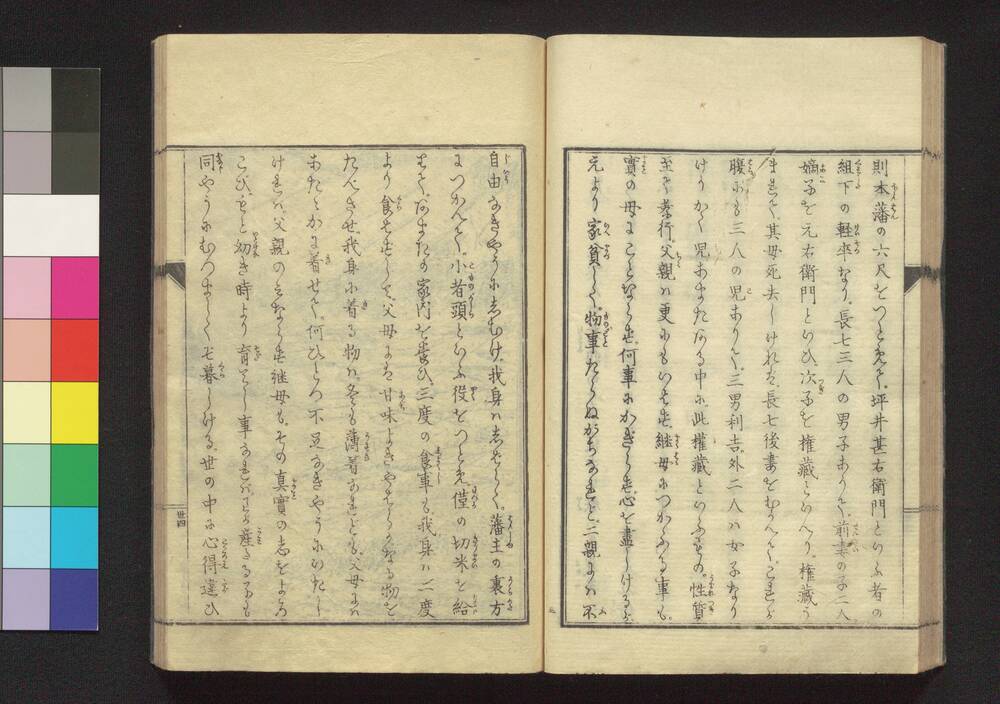 則本藩の六尺をつとめて。坪井甚右衛門といふ者の
組下の軽卒なり。長七三人の男子ありて。前妻の子二人
嫡子を元右衛門といひ。次子を権蔵といへり。権蔵う
まれて。其母死去しけれは。長七後妻をむかへて。これが
腹にも三人の児ありて。三男利吉。外二人ハ女子なり
けり。かく児あまたなる中に。此権蔵といふもの。性質
至て孝行。父親ハ更にもいはず。継母につかふる事も。
實の母にことならず。何事にかぎらず。心を盡しけるが。
元より家貧しく。物事たらぬがちなれど。二親にハ不
自由なきやうにしむけ。我身ハしはらく。藩主の裏方
につかへて。小者頭といふ役をつとめ。僅の切米を給
はりて。あまたの家内を養ひ。三度の食事も我身ハ二度
より食せずして。父母には甘味よきやはらかなる物を
たべさせ我身に着る物ハ。冬も薄着なれども。父母にハ
あたゝかに着せて。何ひとつ不足なきやうにいたし
ければ。父親のみならず継母も。その真實の志をよろ
こび。もと幼き時より育てし事なれバ。わが産る子も
同やうにむつましくぞ暮しける。世の中に心得違ひ
丗四